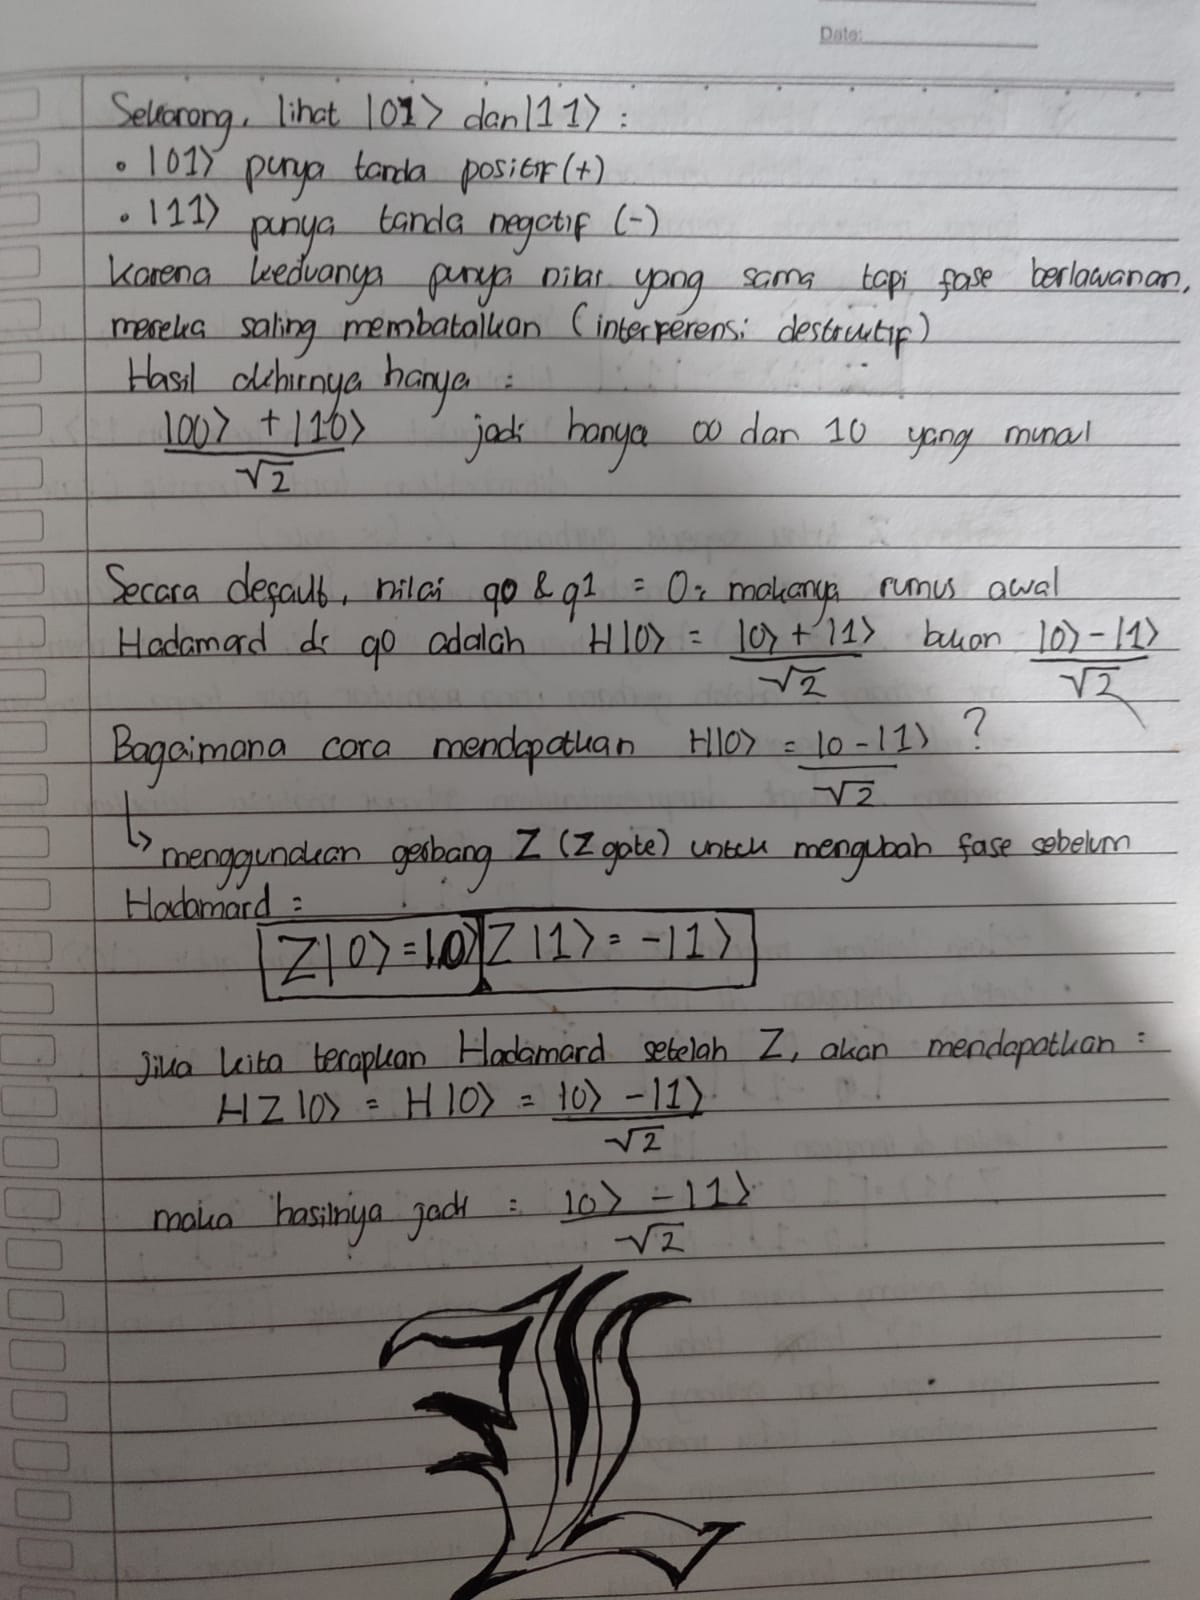 Date:
Sekarang, lihat |01⟩ dan |11⟩ :
• |01⟩ punya tanda positif (+)
• |11⟩ punya tanda negatif (-)
Karena keduanya punya nilai yang sama tapi fase berlawanan,
mereka saling membatalkan (interferensi destruktif)
Hasil akhirnya hanya :
|00⟩ + |10⟩ jadi hanya 00 dan 10 yang muncul
√2
Secara default, nilai q0 & q1 = 0, makanya rumus awal
Hadamard di q0 adalah H|0⟩ = |0⟩ + |1⟩ bukan |0⟩ - |1⟩
√2 √2
Bagaimana cara mendapatkan H|0⟩ = |0 - |1⟩ ?
√2
↳ menggunakan gerbang Z (Z gate) untuk mengubah fase sebelum
Hadamard :
Z|0⟩ = |0⟩ Z|1⟩ = -|1⟩
Jika kita terapkan Hadamard setelah Z, akan mendapatkan :
HZ|0⟩ = H|0⟩ = |0⟩ - |1⟩
√2
maka hasilnya jadi : |0⟩ - |1⟩
√2